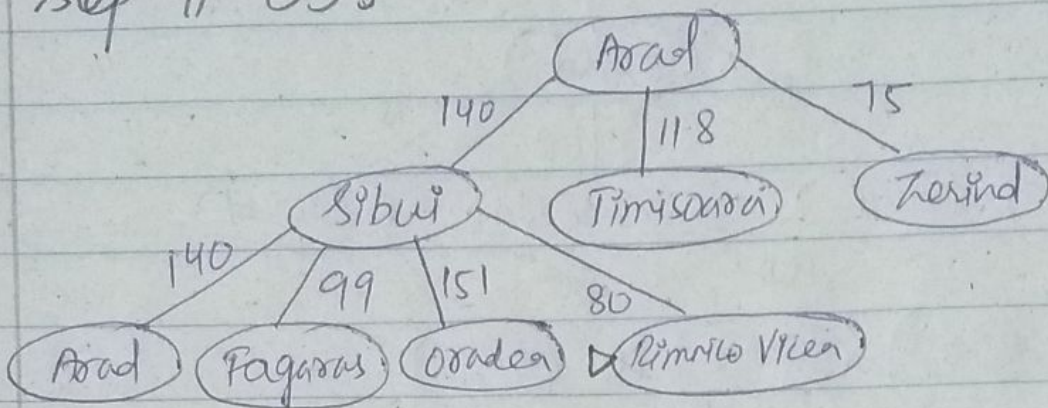 Arad
140 118 75
Sibui Timisoara Zerind
140 99 151 80
Arad Fagaras Oradea Rimnico Vicea